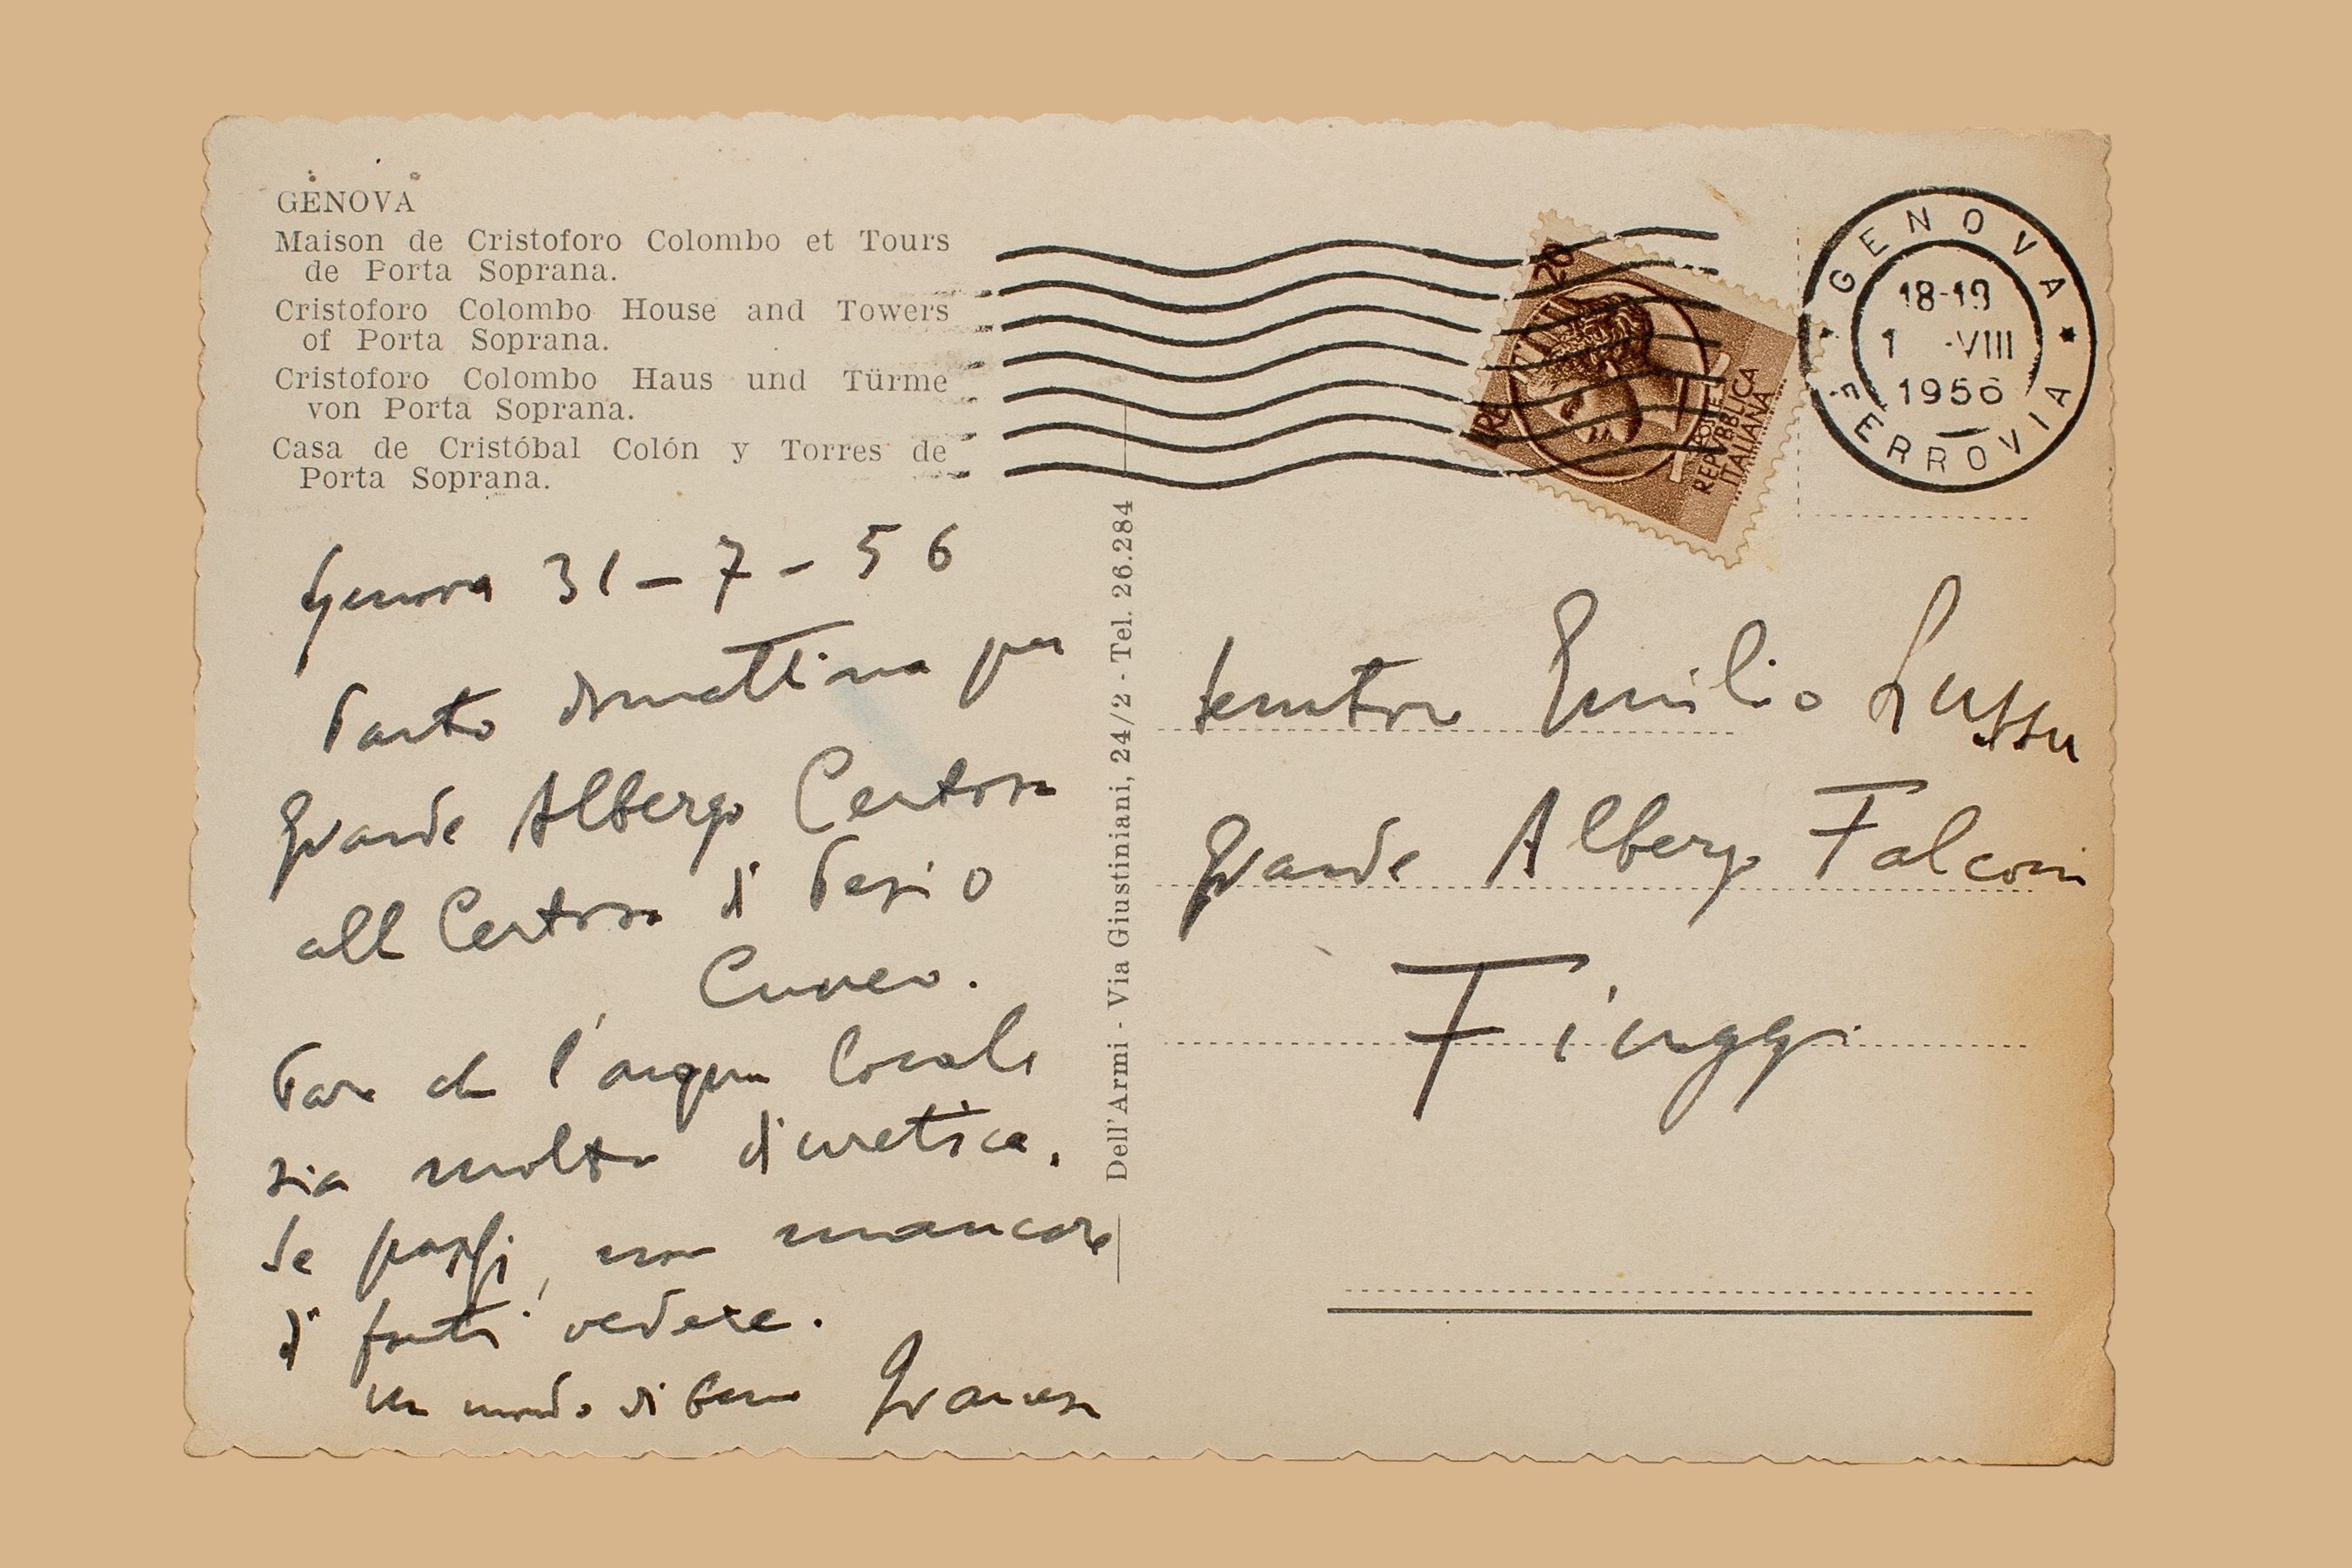 GENOVA
Maison de Cristoforo Colombo et Tours
de Porta Soprana.
Cristoforo Colombo House and Towers
of Porta Soprana.
Cristoforo Colombo Haus und Türme
von Porta Soprana.
Casa de Cristóbal Colón y Torres de
Porta Soprana.
Genova 31-7-56
Parto domattina per
Grande Albergo Certosa
all Certosa di Pesio
Cuneo.
Pare che l'acqua locale
sia molto diuretica.
Se passi, non mancare
di farti vedere.
Un mondo di bene
Dell'Armi - Via Giustiniani, 24/2 - Tel. 26.284
LIRE 20
POSTE
REPVBBLICA
ITALIANA
GENOVA
18-19
1 -VIII
1956
FERROVIA
Senatore Emilio Lussu
Grande Albergo Falconi
Fiuggi